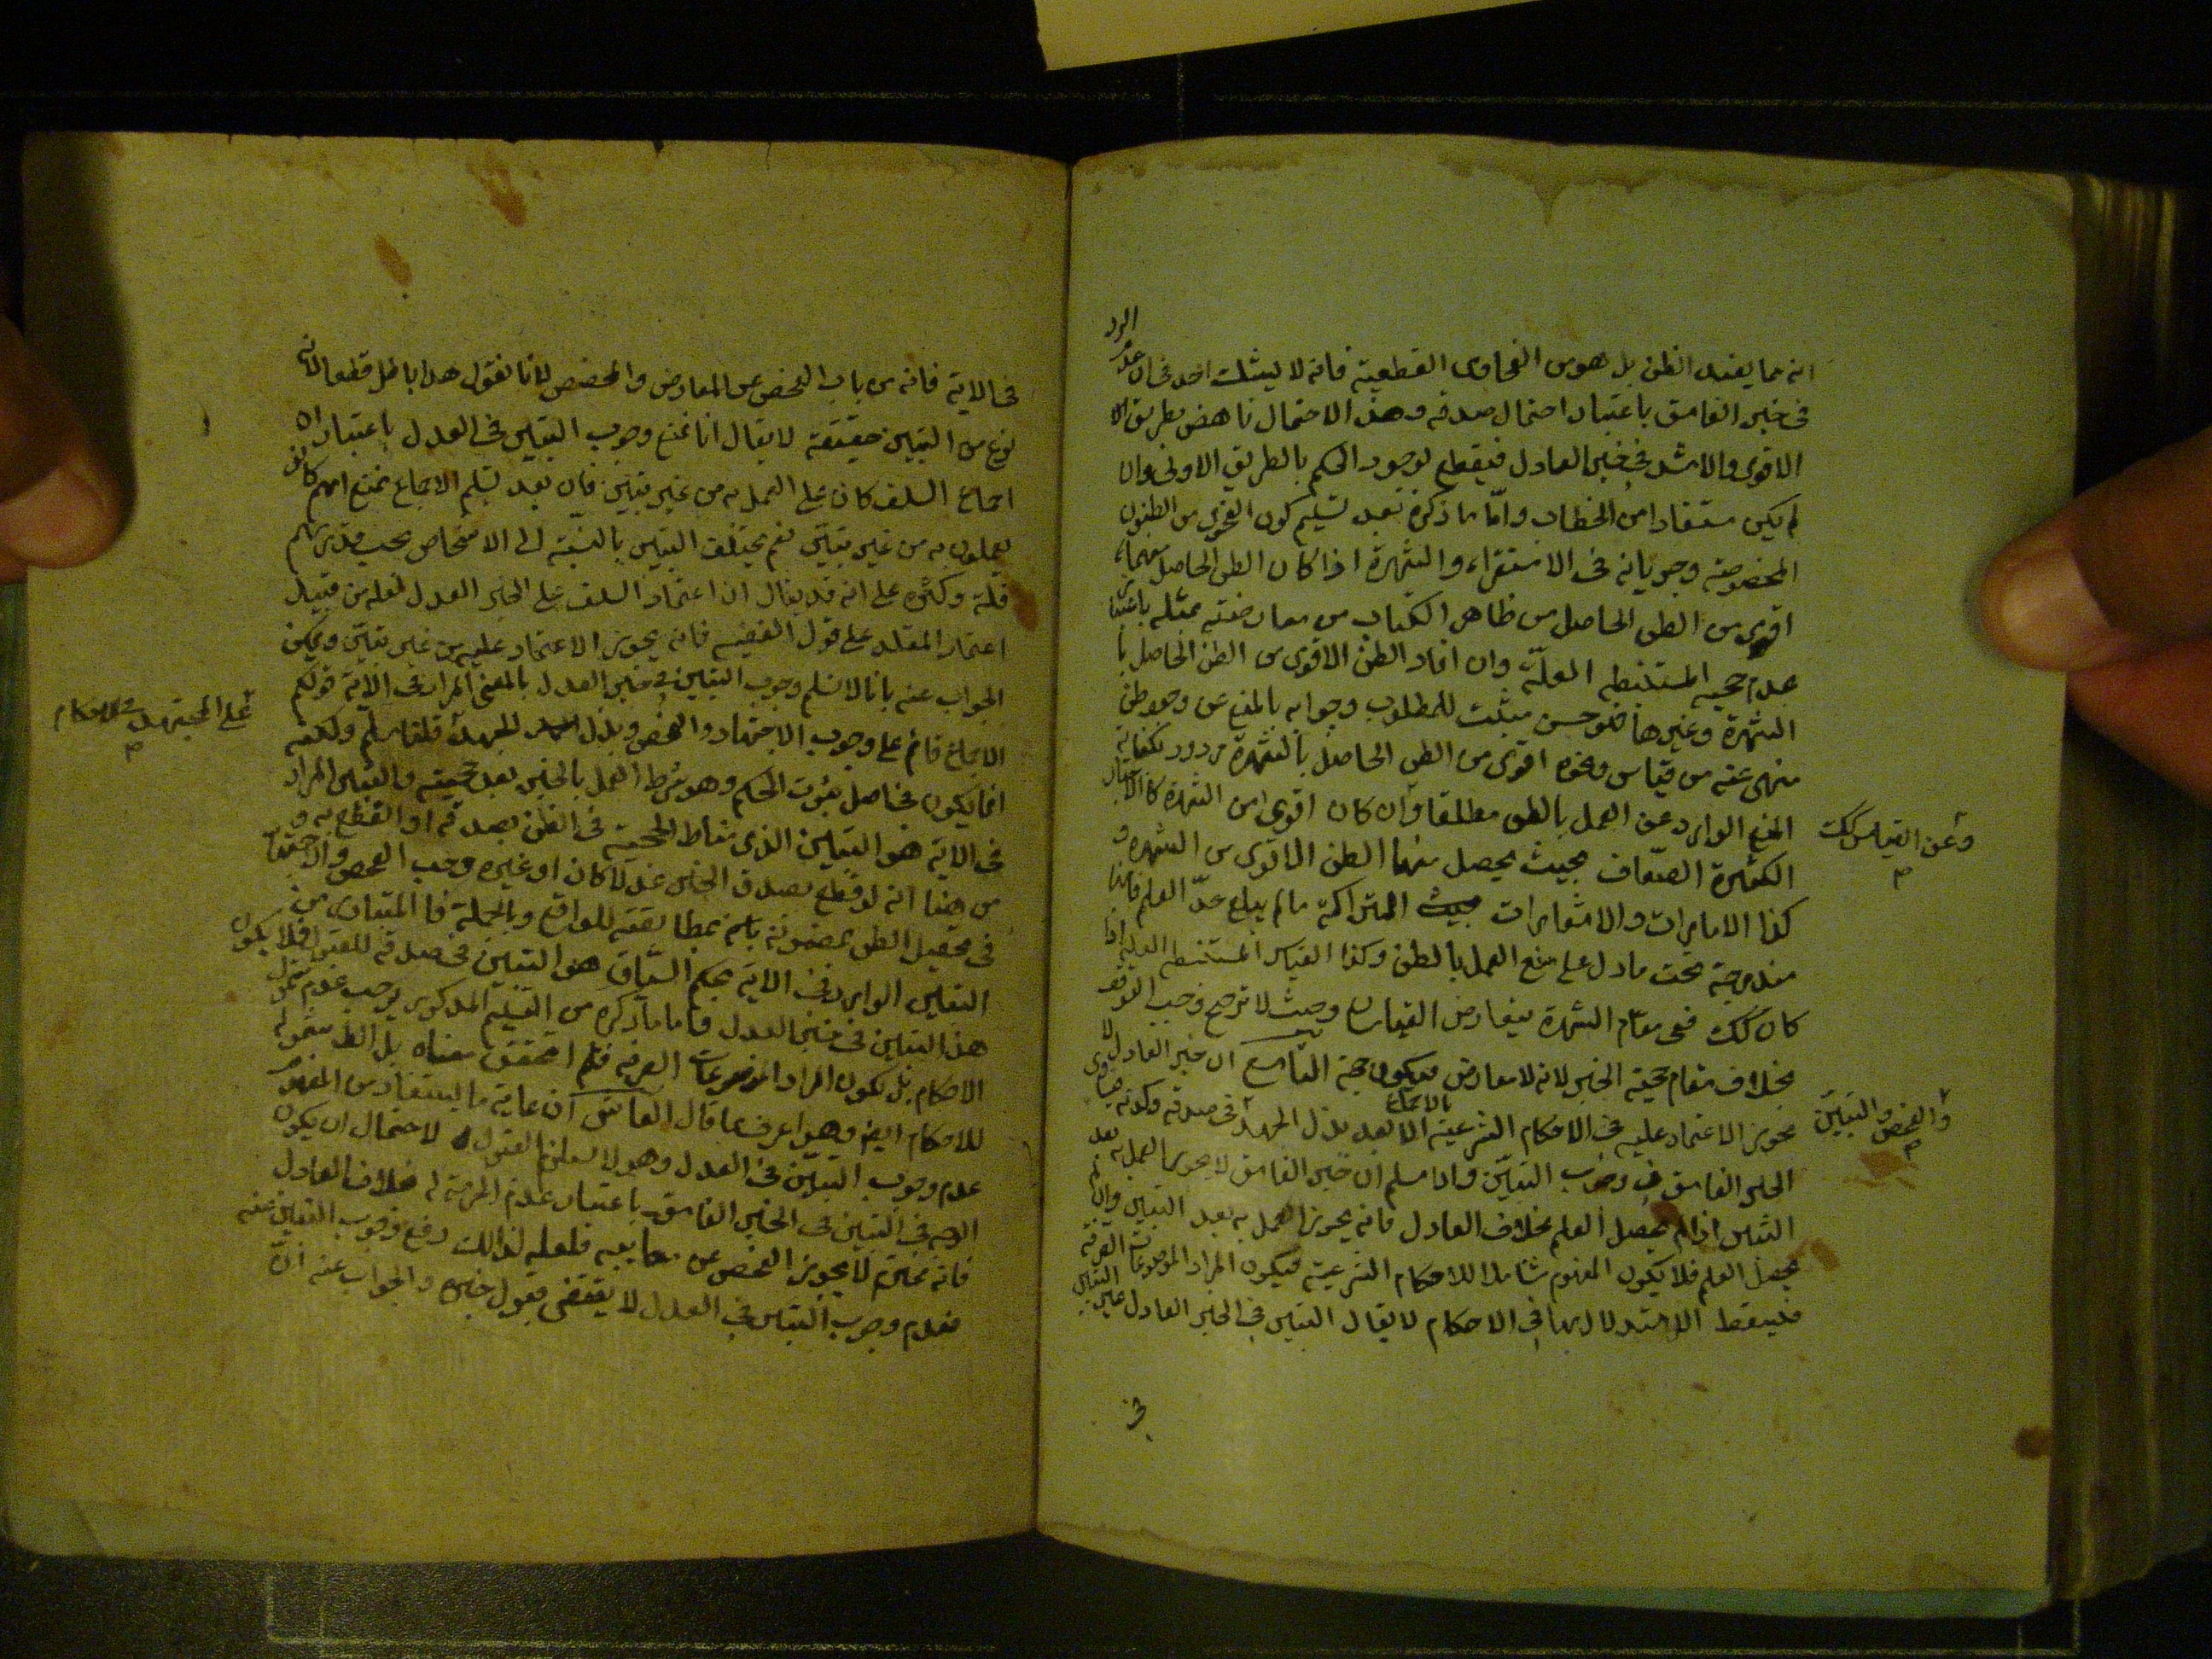 انه مما يفيد الظن بل هو من الفحاوى القطعية فانه لا يشك احد فى ان عدم الرد
فى خبر الفاسق باعتبار احتمال صدقه وهذا الاحتمال ناهض بطريق
الاقوى والاشد فى خبر العادل فيقطع لوجود الحكم بالطريق الاولى وان
لم يكن مستفادا من الخطاب وامّا ما ذكره فبعد تسليم كون الفحوى من الظنون
المخصوصة وجريانه فى الاستقراء والشهرة اذا كان الظن الحاصل منهما
اقوى من الظن الحاصل من ظاهر الكتاب من معارضته بمثله باعتبار
عدم حجية المستنبط العلّة وان افاد الظن الاقوى من الظن الحاصل با
الشهرة وغيرها فلو حسن مثبت للمطلوب وجوابه بالمنع عن وجود ظن
منهى عنه من قياس ونحوه اقوى من الظن الحاصل بالشهرة مردود بكفاية
المنع الوارد عن العمل بالظن مطلقا وان كان اقوى من الشهرة كالاخبار
وعن القياس كك
الكثيرة الضعاف بحيث يحصل منها الظن الاقوى من الشهرة و
كذا الامارات والاشعارات المتراكمة ما لم يبلغ حدّ العلم فانها
مندرجة تحت ما دل على منع العمل بالظن وكذا القياس المستنبط العلة اذا
كان كك ففى مقام الشهرة يتعارض القياسان وحيث لا ترجيح وجب التوقف
بخلاف مقام حجية الخبر لانه لا معارض فيكون حجة التاسع ان خبر العادل لا
يجوز الاعتماد عليه فى الاحكام الشرعية بالاجماع الا بعد بذل الجهد فى صدقه وكذبه فيساوى
والفحص والتبيّن
الخبر الفاسق فى وجوب التبيّن واذا سلم ان خبر الفاسق لا يجوز العمل به بعد
التبين اذا لم يحصل العلم بخلاف العادل فانه يجوز العمل به بعد التبين وان لم
يحصل العلم فلا يكون المفهوم شاملا للاحكام الشرعية فيكون المراد الموضوعات العرفية
فيسقط الاستدلال بها فى الاحكام لا يقال التبين فى الخبر العادل غير التبين
فى
فى الاية فانه من باب الفحص عن المعارض والمخصص لانا نقول هذا باطل قطعا لانه
نوع من التبين حقيقة لا يقال انا نمنع وجوب التبين فى العدل باعتبار ان
اجماع السلف كان على العمل به من غير تبين فان بعد تسليم الاجماع نمنع انهم كانوا
يعملون به من غير تبيّن نعم يختلف التبين بالنسبة الى الاشخاص بحسب
قلة وكثرة على انه قد يقال ان اعتماد السلف على الخبر العدل لعله من قبيل
اعتماد المقلد على قول الفقيه فانه يجوز الاعتماد عليه من غير تبيّن ويمكن
الجواب عنه بانا لا نسلم وجوب التبين فى خبر العدل بالمعنى المراد فى الاية قولكم
الاجماع قائم على وجوب الاجتهاد والفحص وبذل الجهد قلنا مسلم ولكنه
على المجتهد فى الاحكام
انما يكون فى اصل ثبوت الحكم وهو شرط العمل بالخبر بعد حجيته والتبين المراد
فى الاية هو التبين الذى مناط الحجية فى الظن بصدقه او القطع به و
من هنا انه لو قطع بصدق الخبر عدلا كان او غيره وجب الفحص والاجتهاد
فى تحصيل الظن بمضمونه بانه بمطابقته للواقع وبالجملة فالمتبادر من
التبين الوارد فى الاية بحكم السياق هو التبين فى صدقه للقبول فلا يكون
هذا التبين فى خبر العدل فاما ما ذكره من التسليم المذكور يوجب عدم شمول
الاحكام بل يكون المراد الموضوعات العرفيه فلم يتحقق معناه بل الظ شموله
للاحكام ايضا وهو اعرف بما قال العاشر ان غاية ما يستفاد من المفهوم
عدم وجوب التبين فى العدل وهو لا يستلزم القبول لاحتمال ان يكون
الوجه فى التبين فى الخبر الفاسق باعتبار عدم الحرمة له بخلاف العادل
فانه محترم لا يجوز الفحص عن معايبه فلعله لذالك رفع وجوب التبين عنه
فعدم وجوب التبين فى العدل لا يقتضى قبول خبره والجواب عنه انّ